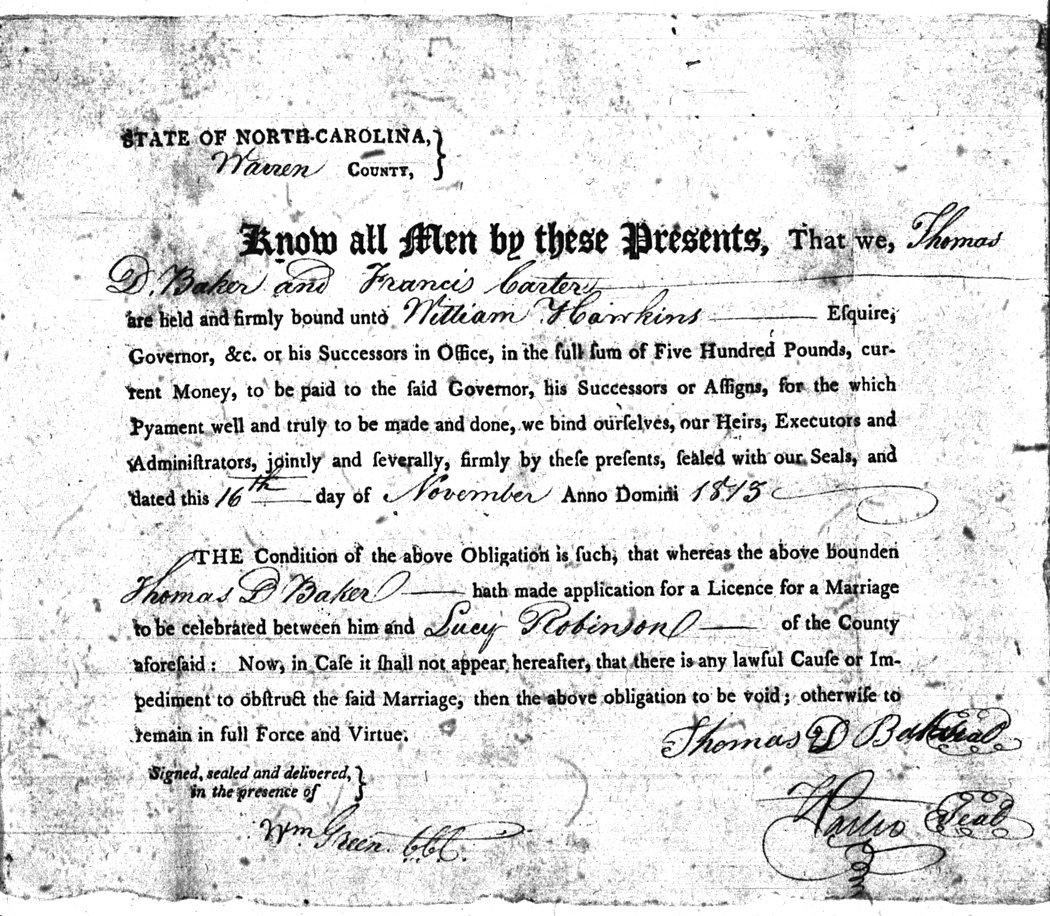 STATE OF NORTH-CAROLINA,
Warren COUNTY,
Know all Men by these Presents, That we, Thomas
D. Baker and Francis Carter
are held and firmly bound unto William Hawkins Eſquire,
Governor, &c. or his Successors in Office, in the full ſum of Five Hundred Pounds, cur-
rent Money, to be paid to the ſaid Governor, his Successors or Aſſigns, for the which
Pyament well and truly to be made and done, we bind ourſelves, our Heirs, Executors and
Adminiſtrators, jointly and ſeverally, firmly by theſe preſents, ſealed with our Seals, and
dated this 16th day of November Anno Domini 1813
THE Condition of the above Obligation is ſuch, that whereas the above bounden
Thomas D Baker hath made application for a Licence for a Marriage
to be celebrated between him and Lucy Robinson of the County
aforeſaid: Now, in Caſe it ſhall not appear hereafter, that there is any lawful Cauſe or Im-
pediment to obſtruct the ſaid Marriage, then the above obligation to be void; otherwiſe to
remain in full Force and Virtue.
Thomas D Baker Seal
Signed, sealed and delivered,
in the presence of
Seal
Wm Green